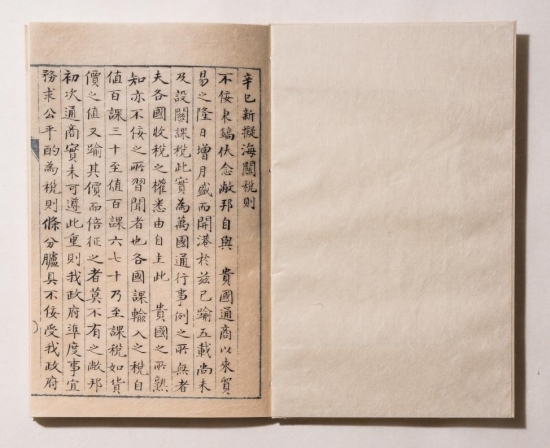 辛巳新擬海關稅則
不佞東瑞伏念敝邦自與　貴國通商以來貿
易之隆日增月盛而開港於玆已踰五載尚未
及設關課稅此實爲萬國通行事例之所無者
夫各國收稅之權悉由自主此　貴國之所熟
知亦不佞之所習聞者也各國課輸入之稅自
值百課三十至值百課六七十乃至課稅如貨
價之值又踰其價而倍征之者莫不有之敝邦
初次通商實未可遵此重則我政府準度事宜
務求公平酌爲稅則條分臚具不佞受我政府